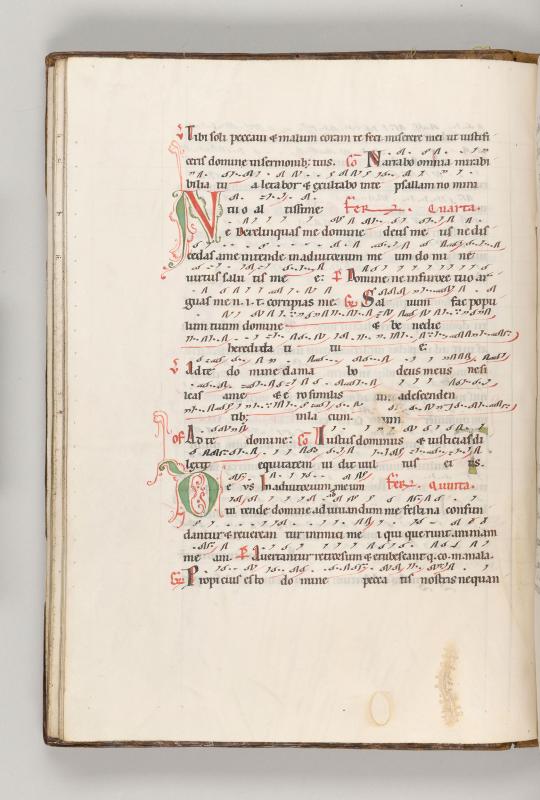 Tibi soli peccaui & malum coram te feci miserere mei ut iustifi
ceris domine insermonib; tuis. Co Narrabo omnia mirabi
bilia tu a letabor & exultabo inte psallam no mini
tuo al tissime fer quarta.
Ne derelinquas me domine deus me us ne dis
cedas ame intende inadiutorium me um do mi ne
uirtus salu tis me e: P Domine ne infurore tuo ar
guas me n. i. t. corripias me. Gr Sal uum fac popu
lum tuum domine & be nedic
hereditati tu e:
V Adte do mine clama bo deus meus nesi
leas ame & e ro similis descenden
tib; inla cum.
of Adte domine: Co Iustus dominus & iusticias di
lexit equitatem ui dit uul tus ei us.
De us Inadiutorium meum fer Quinta.
in tende domine ad iuuandum me festi na confun
dantur & reuerean tur inimici me i qui querunt animam
me am. P Auertantur retrorsum & erubescant q. co. m. mala.
Gr Propicius esto do mine pecca tis nostris nequan